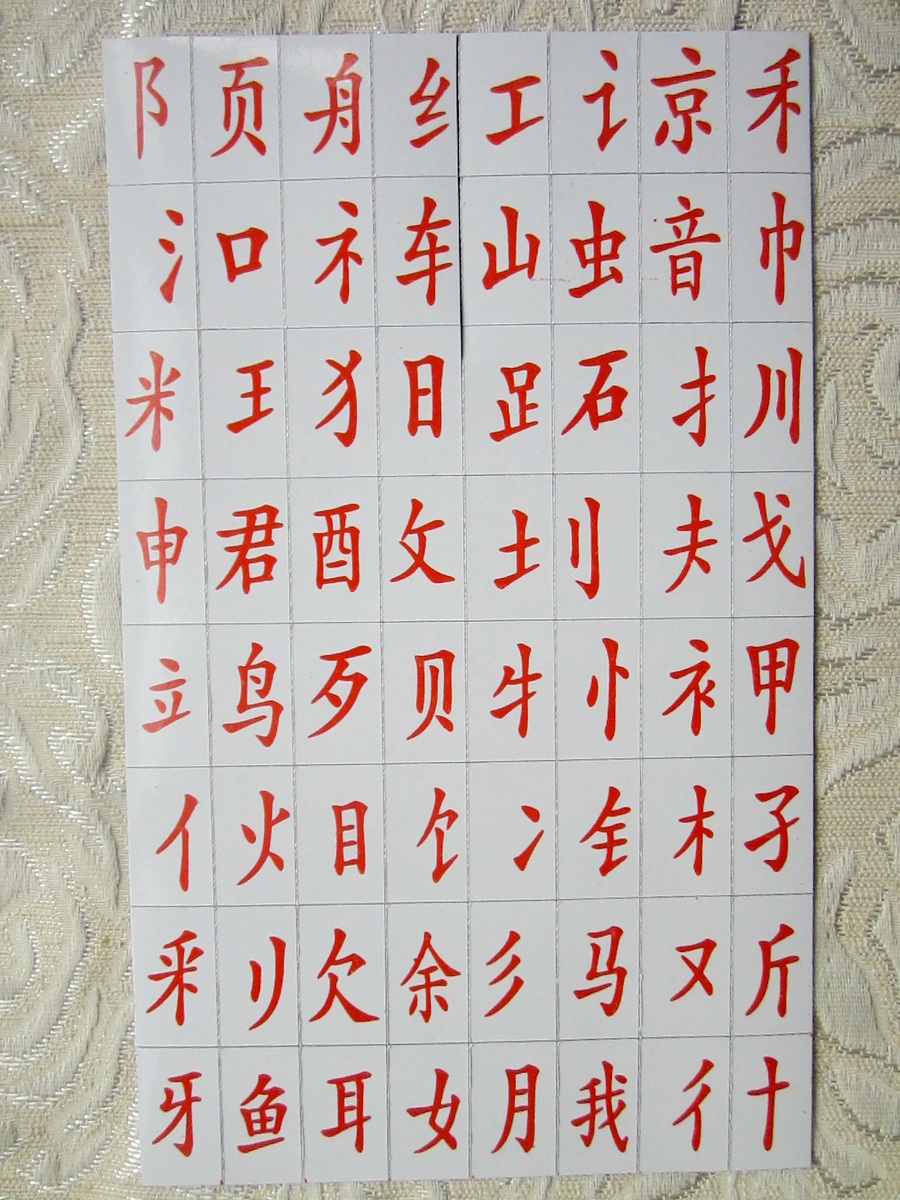 阝 页 舟 纟 工 讠 京 禾
氵 口 礻 车 山 虫 音 巾
米 王 犭 日 𧾷 石 扌 川
申 君 酉 攵 土 刂 夫 戈
立 鸟 歹 贝 牜 忄 衤 甲
亻 火 目 饣 冫 钅 木 孑
釆 刂 欠 余 彡 马 又 斤
牙 鱼 耳 女 月 我 彳 十